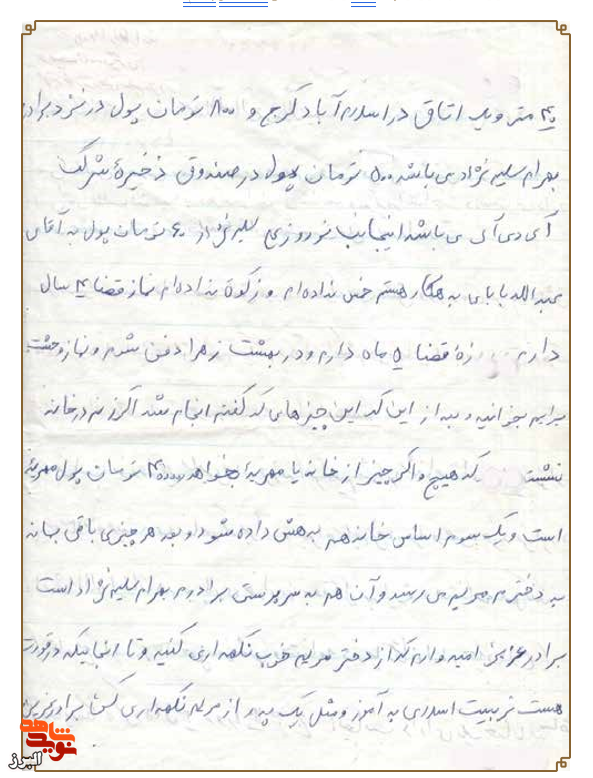 ۴۰ متر و یک اتاق در اسلام آباد کرج و ۸۰۰ تومان پول در نزد برادر
بهرام سلیم نژاد می باشد ۵۰۰ تومان پول در صندوق ذخیرهٔ شرکت
آی دی آی می باشد اینجانب نوروزعلی سلیم نژاد ۶۰ تومان پول به آقای
عبدالله بابای بدهکار هستم خمس نداده ام و زکوة نداده ام نماز قضا ۴ سال
دارم روزهٔ قضا ۵ ماه دارم و در بهشت زهرا دفن شوم و نماز وحشت
برایم بخوانید و بعد از این که این چیزهای که گفته انجام شد اگر زنم در خانه
نشست که هیچ و اگر چیز از خانه یا مهریهٔ بخواهد ۴۰۰۰۰ تومان پول مهریهٔ
است و یک سوم اساس خانه هم بهش داده شود و بعد هر چیزی باقی بماند
به دخترم مریم می رسد و آن هم به سرپرستی برادرم بهرام سلیم نژاد است
برادر عزیزم امیدوارم که از دختر مریم خوب نگهداری کنید و تا انجایکه در قدرت
هست تربیت اسلامی به آموز و مثل یک پدر از مریم نگهداری کن برادر عزیزم
شاهد
نوید
البرز